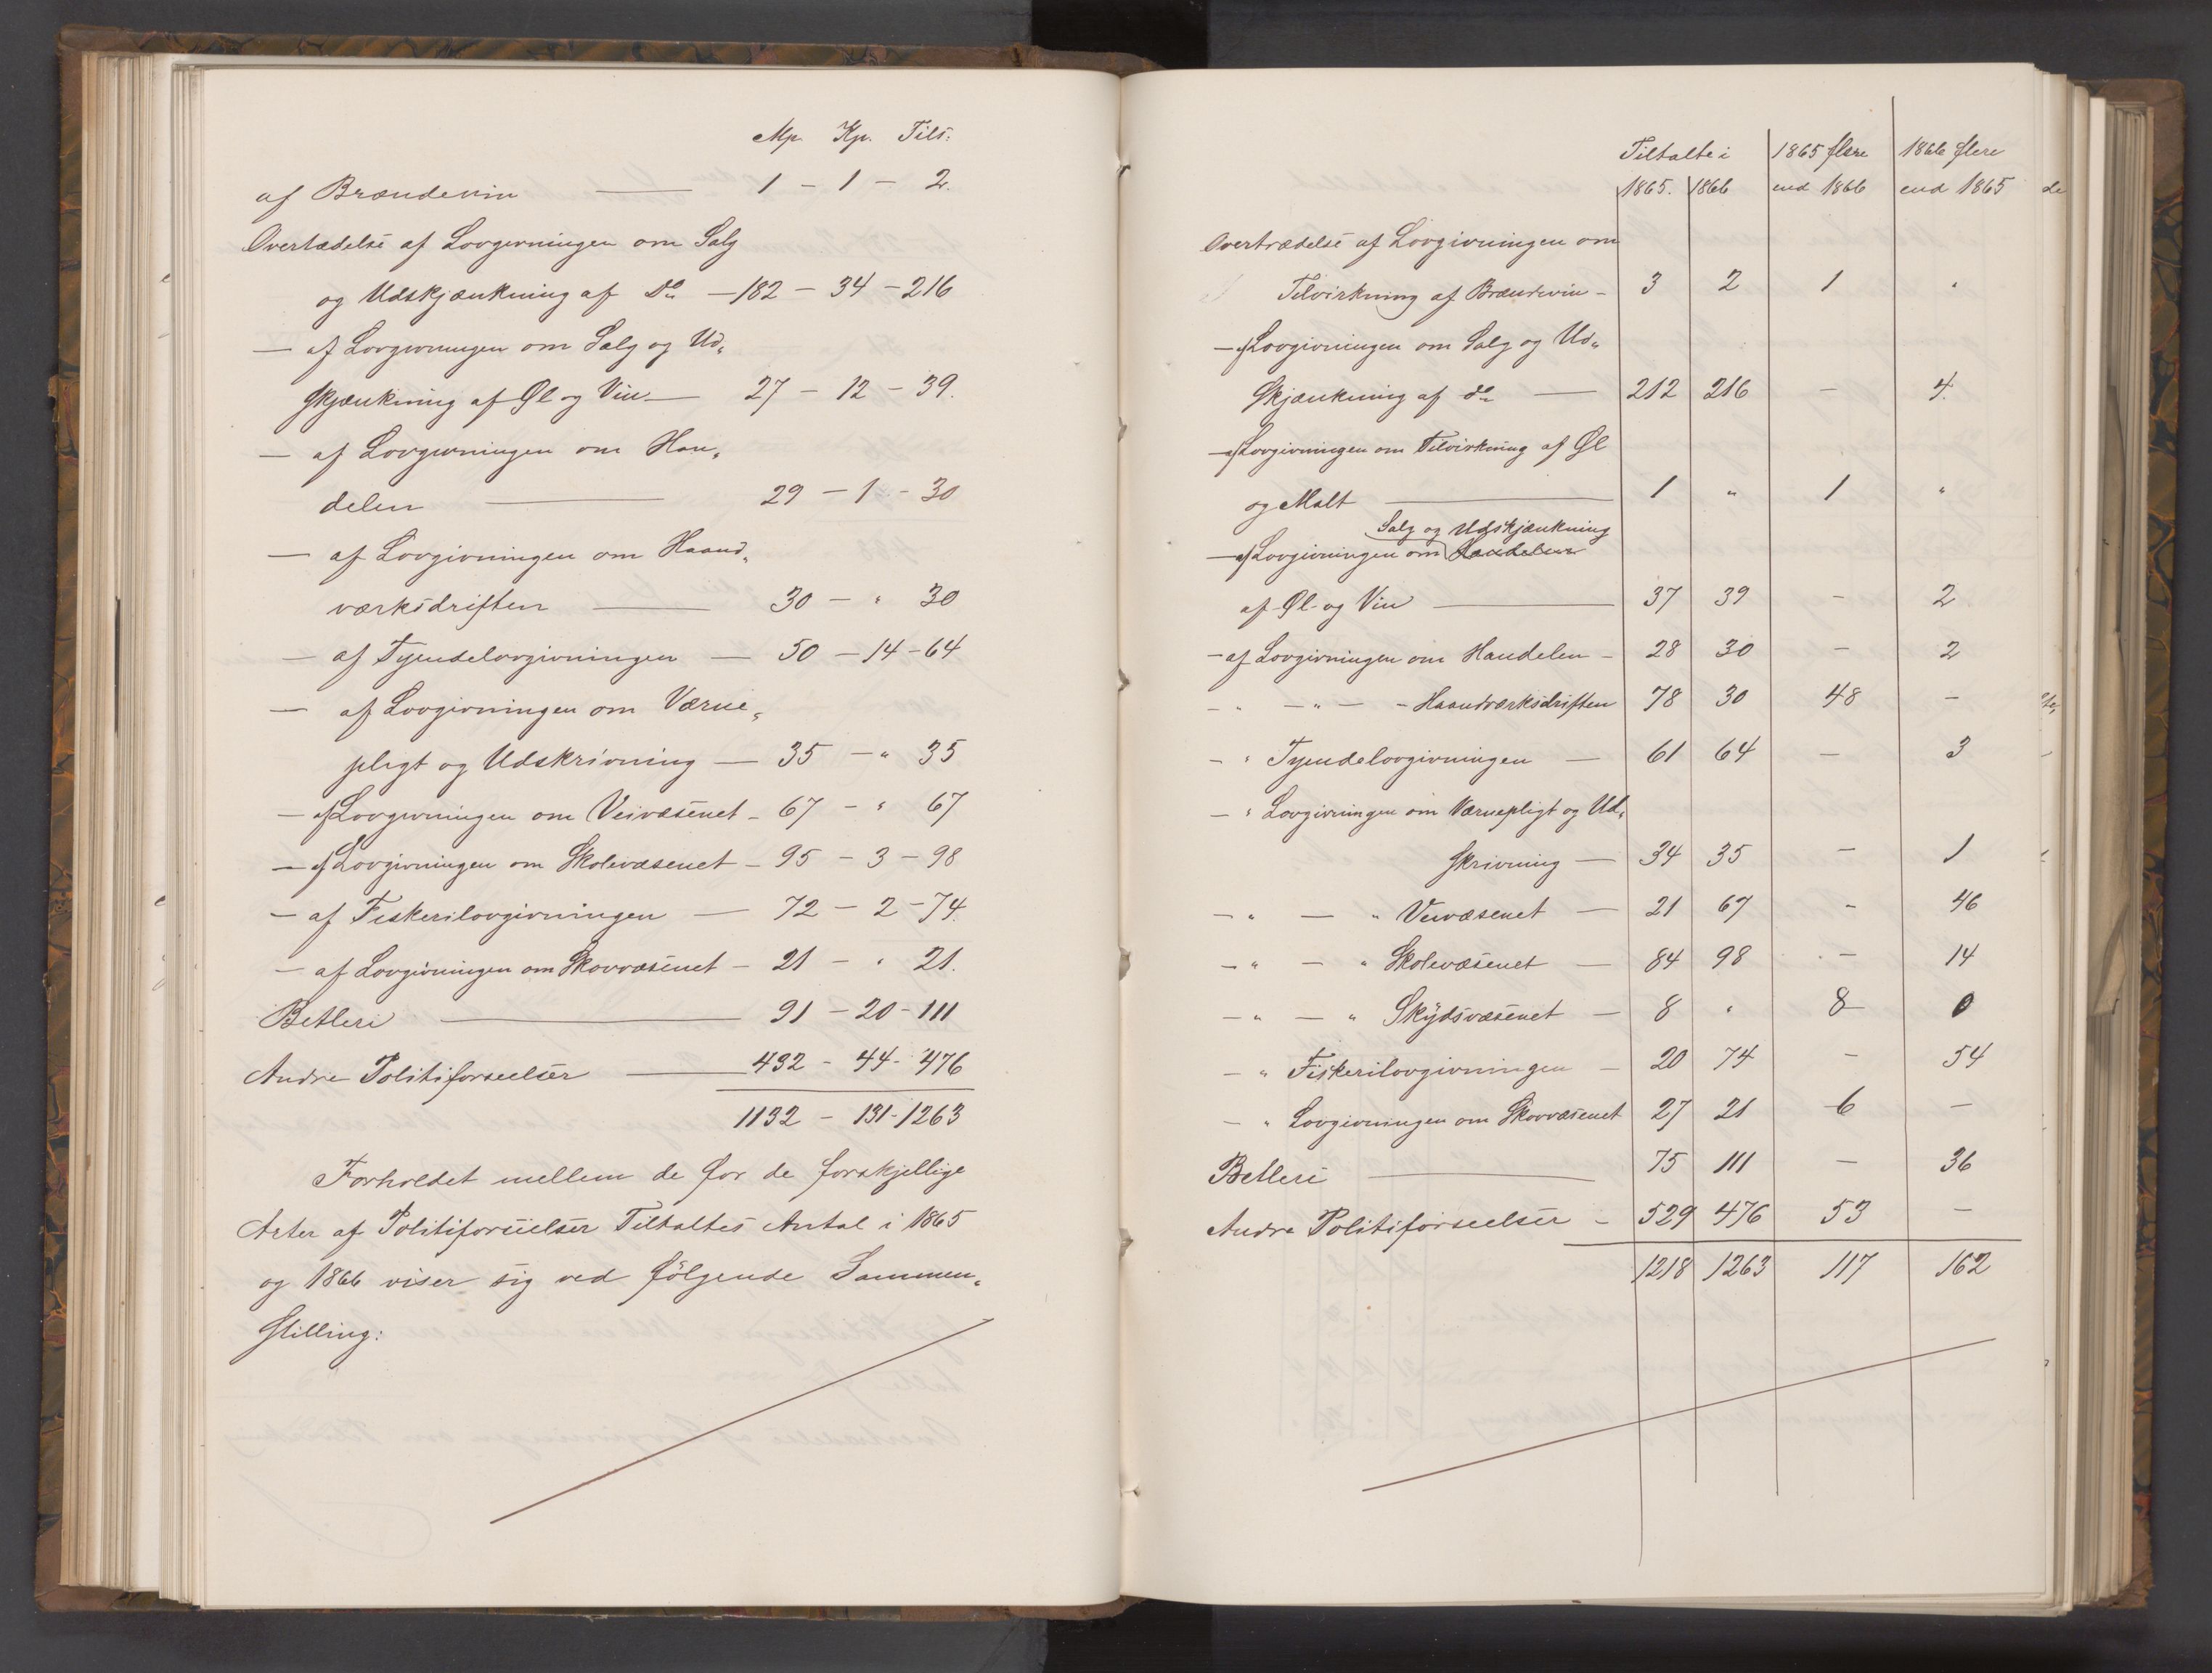 Mp. Kp. Tils:
af Brændeviin — 1 – 1 – 2.
Overtædelse af Lovgivningen om Salg
og Udskjænkning af Do – 182 – 34 – 216
— af Lovgivningen om Salg og Ud„
skjænkning af Øl og Vin — 27 – 12 – 39.
— af Lovgivningen om Han„
delen — 29 – 1 – 30
— af Lovgivningen om Haand„
værksdriften — 30 – „ 30
— af Tyendelovgivningen — 50 – 14 – 64
— af Lovgivningen om Værne„
pligt og Udskrivning — 35 – „ 35
— af Lovgivningen om Veivæsenet – 67 – „ 67
— af Lovgivningen om Skolevæsenet – 95 – 3 – 98
— af Fiskerilovgivningen — 72 – 2 – 74.
— af Lovgivningen om Skovvæsenet – 21 – „ 21.
Betleri — 91 – 20 – 111
Andre Politiforseelser — 432 – 44 – 476
1132 – 131 – 1263
Forholdet mellem de for de forskjellige
Arter af Politiforseelser Tiltaltes Antal i 1865
og 1866 viser sig ved følgende Sammen„
stilling:
Tiltalte i 1865 flere 1866 flere
1865. 1866 end 1866 end 1865
Overtrædelse af Lovgivningen om
Tilvirkning af Brændeviin – 3 2 1 „
— af Lovgivningen om Salg og Ud„
skjænkning af do — 212 216 – 4.
— af Lovgivningen om Tilvirkning af Øl
og Malt — 1 „ 1 „
Salg og Udskjænkning
— af Lovgivningen om Handelen
af Øl og Vin — 37 39 – 2
– af Lovgivningen om Handelen – 28 30 – 2
– „ – „ – – Haandværksdriften 78 30 48 –
– „ Tyendelovgivningen — 61 64 – 3
– „ Lovgivningen om Værnepligt og Ud„
skrivning — 34 35 – 1
– „ — „ Veivæsenet — 21 67 – 46
– „ — „ Skolevæsenet — 84 98 – 14
– „ — „ Skydsvæsenet — 8 „ 8 0
– „ Fiskerilovgivningen – 20 74 – 54
– „ Lovgivningen om Skovvæsenet 27 21 6 –
Betleri — 75 111 – 36
Andre Politiforseelser – 529 476 53 –
1218 1263 117 162